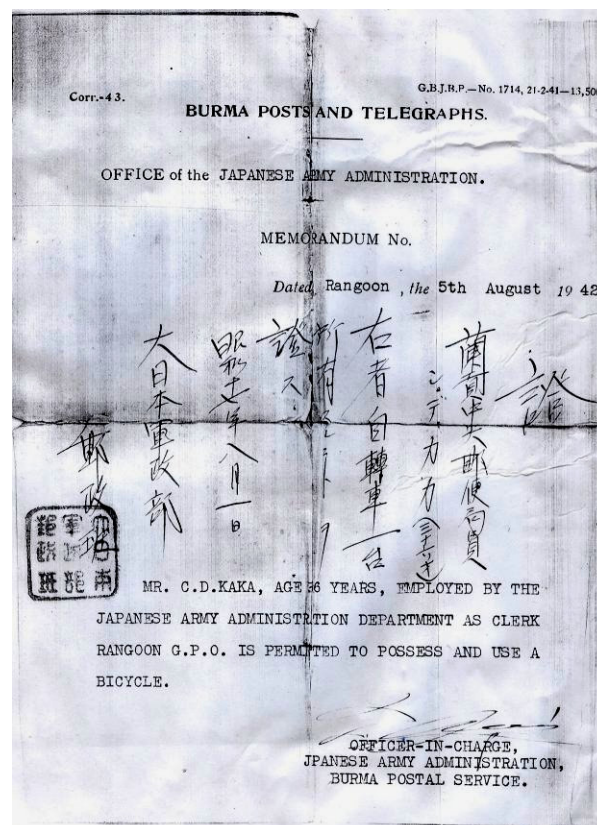 Corr.-43.
G.B.J.B.P.—No. 1714, 21-2-41—13,500
BURMA POSTS AND TELEGRAPHS.
OFFICE of the JAPANESE ARMY ADMINISTRATION.
MEMORANDUM No.
Dated, Rangoon , the 5th August 1942
證
蘭貢中央郵便局員
シ・デ・カカ(三十六才)
右者自轉車一台
所有
證ス
昭和十七年八月一日
大日本軍政部
郵政班
軍政部
郵政班
MR. C.D.KAKA, AGE 36 YEARS, EMPLOYED BY THE
JAPANESE ARMY ADMINISTRATION DEPARTMENT AS CLERK
RANGOON G.P.O. IS PERMITTED TO POSSESS AND USE A
BICYCLE.
OFFICER-IN-CHARGE,
JPANESE ARMY ADMINISTRATION,
BURMA POSTAL SERVICE.